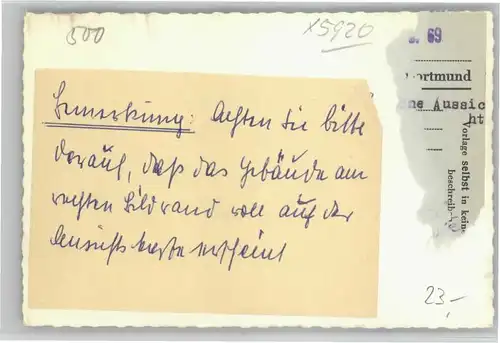 500
X5920
. 69
Dortmund
ne Aussic
ht
Vorlage selbst in keine
beschreib
Bemerkung: Achten Sie bitte
darauf, daß das Gebäude am
rechten Bildrand voll auf der
Ansichtskarte erscheint
23,-